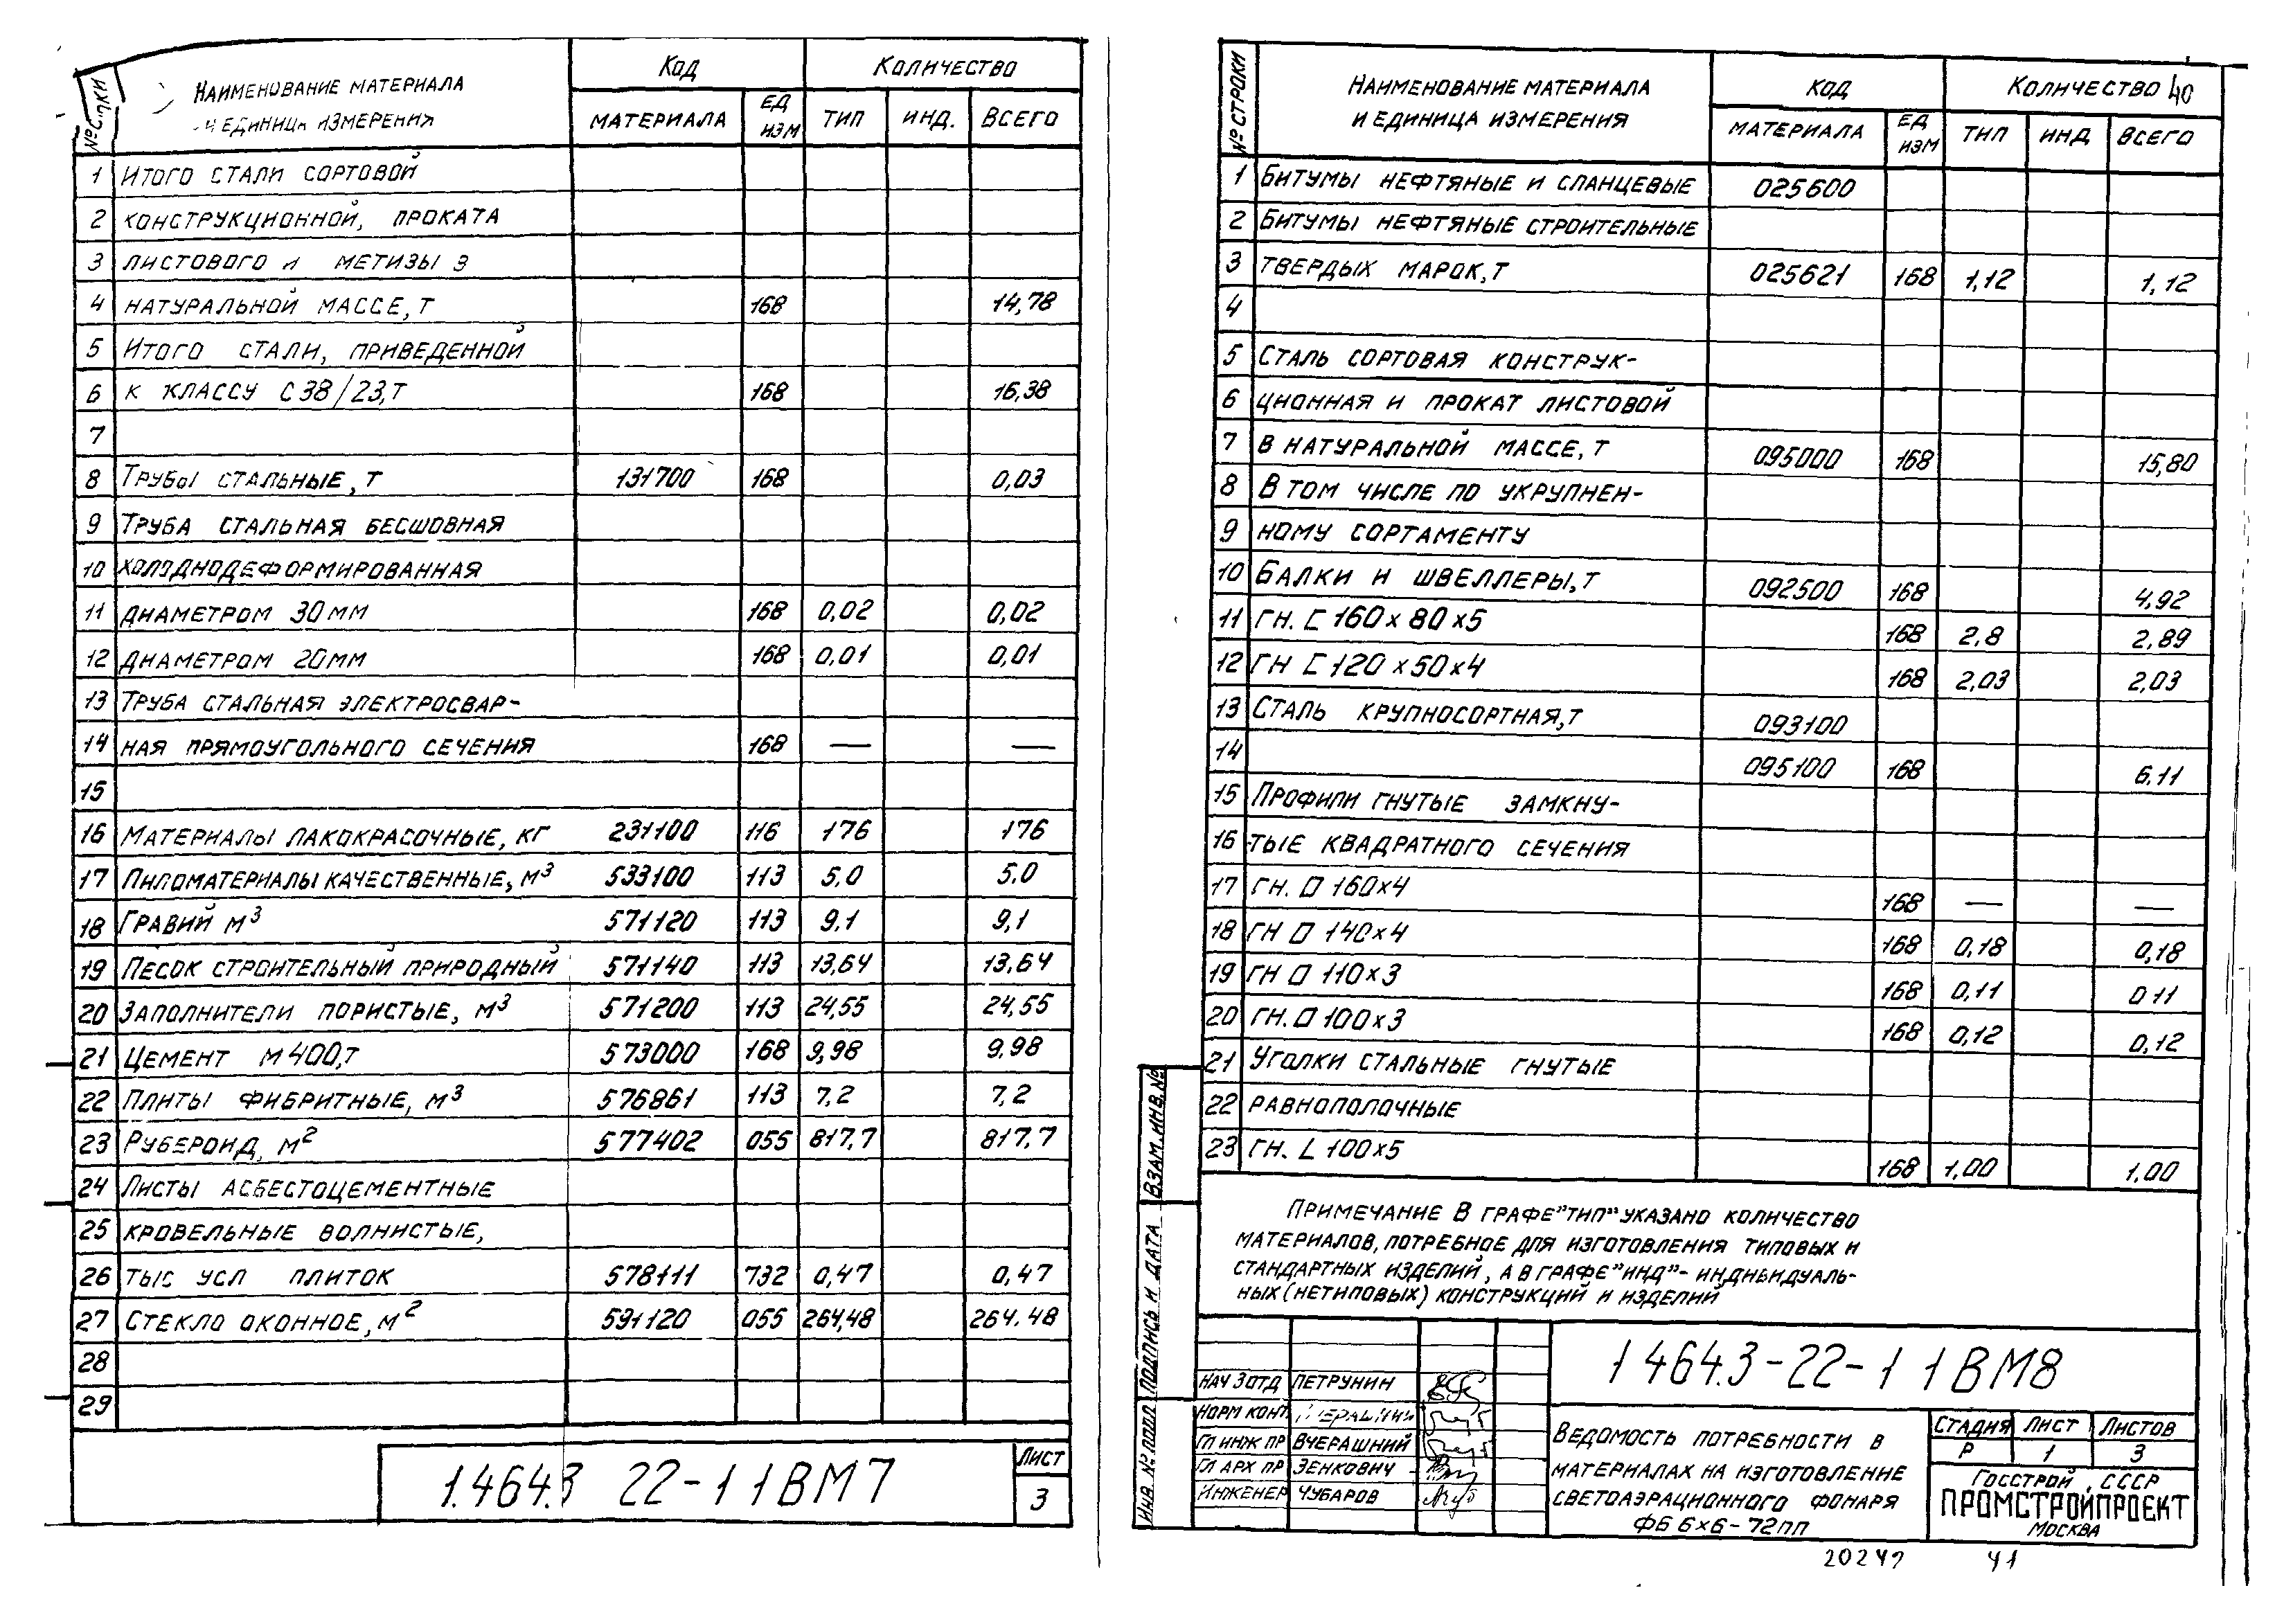 № строки
Наименование материала
и единица измерения
Код
Количество
материала
ед изм
тип
инд.
всего
1 Итого стали сортовой
2 конструкционной, проката
3 листового и метизы в
4 натуральной массе, т 168 14,78
5 Итого стали, приведенной
6 к классу С38/23, т 168 16,38
7
8 Трубы стальные, т 131700 168 0,03
9 Труба стальная бесшовная
10 холоднодеформированная
11 диаметром 30мм 168 0,02 0,02
12 диаметром 20мм 168 0,01 0,01
13 Труба стальная электросвар-
14 ная прямоугольного сечения 168 — —
15
16 Материалы лакокрасочные, кг 231100 116 176 176
17 Пиломатериалы качественные, м³ 533100 113 5.0 5.0
18 Гравий м³ 571120 113 9.1 9,1
19 Песок строительный природный 571140 113 13,64 13,64
20 Заполнители пористые, м³ 571200 113 24,55 24,55
21 Цемент М400,т 573000 168 9,98 9.98
22 Плиты фибритные, м³ 576861 113 7,2 7,2
23 Рубероид, м² 577402 055 817,7 817,7
24 Листы асбестоцементные
25 кровельные волнистые,
26 тыс усл плиток 578111 732 0,47 0,47
27 Стекло оконное, м² 591120 055 264,48 264.48
28
29
1.464.3 22-1 1ВМ7
Лист
3
№ строки
Наименование материала
и единица измерения
Код
Количество 40
материала
ед изм
тип
инд
всего
1 Битумы нефтяные и сланцевые 025600
2 Битумы нефтяные строительные
3 твердых марок, т 025621 168 1,12 1,12
4
5 Сталь сортовая конструк-
6 ционная и прокат листовой
7 в натуральной массе, т 095000 168 15,80
8 В том числе по укрупнен-
9 ному сортаменту
10 Балки и швеллеры, т 092500 168 4,92
11 гн. [ 160×80×5 168 2,8 2,89
12 гн [ 120×50×4 168 2,03 2,03
13 Сталь крупносортная, т 093100
14 095100 168 6.11
15 Профили гнутые замкну-
16 тые квадратного сечения
17 гн. □ 160×4 168 — —
18 гн □ 140×4 168 0,18 0,18
19 гн □ 110×3 168 0,11 0 11
20 гн. □ 100×3 168 0,12 0,12
21 Уголки стальные гнутые
22 равнополочные
23 гн. L 100×5 168 1,00 1.00
Примечание В графе "тип" указано количество
материалов, потребное для изготовления типовых и
стандартных изделий, а в графе "инд"- индивидуаль-
ных (нетиповых) конструкций и изделий
Взам. инв. №
Подпись и дата
Инв. № подл
Нач Зотд Петрунин
Норм конт.
Гл инж пр Вчерашний
Гл арх пр Зенкович
Инженер Чубаров
1 464.3-22-1 1ВМ8
Ведомость потребности в
материалах на изготовление
светоаэрационного фонаря
ФБ 6×6-72пп
Стадия Лист Листов
Р 1 3
Госстрой СССР
ПРОМСТРОЙПРОЕКТ
Москва
41